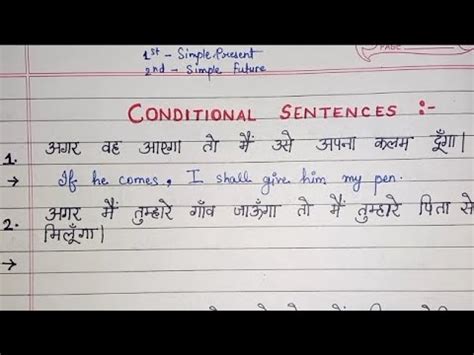 PAGE
1st - Simple Present
2nd - Simple Future
CONDITIONAL SENTENCES :-
1. अगर वह आएगा तो मैं उसे अपना कलम दूँगा।
→ If he comes, I shall give him my pen.
2. अगर मैं तुम्हारे गाँव जाऊँगा तो मैं तुम्हारे पिता से
मिलूँगा।
→